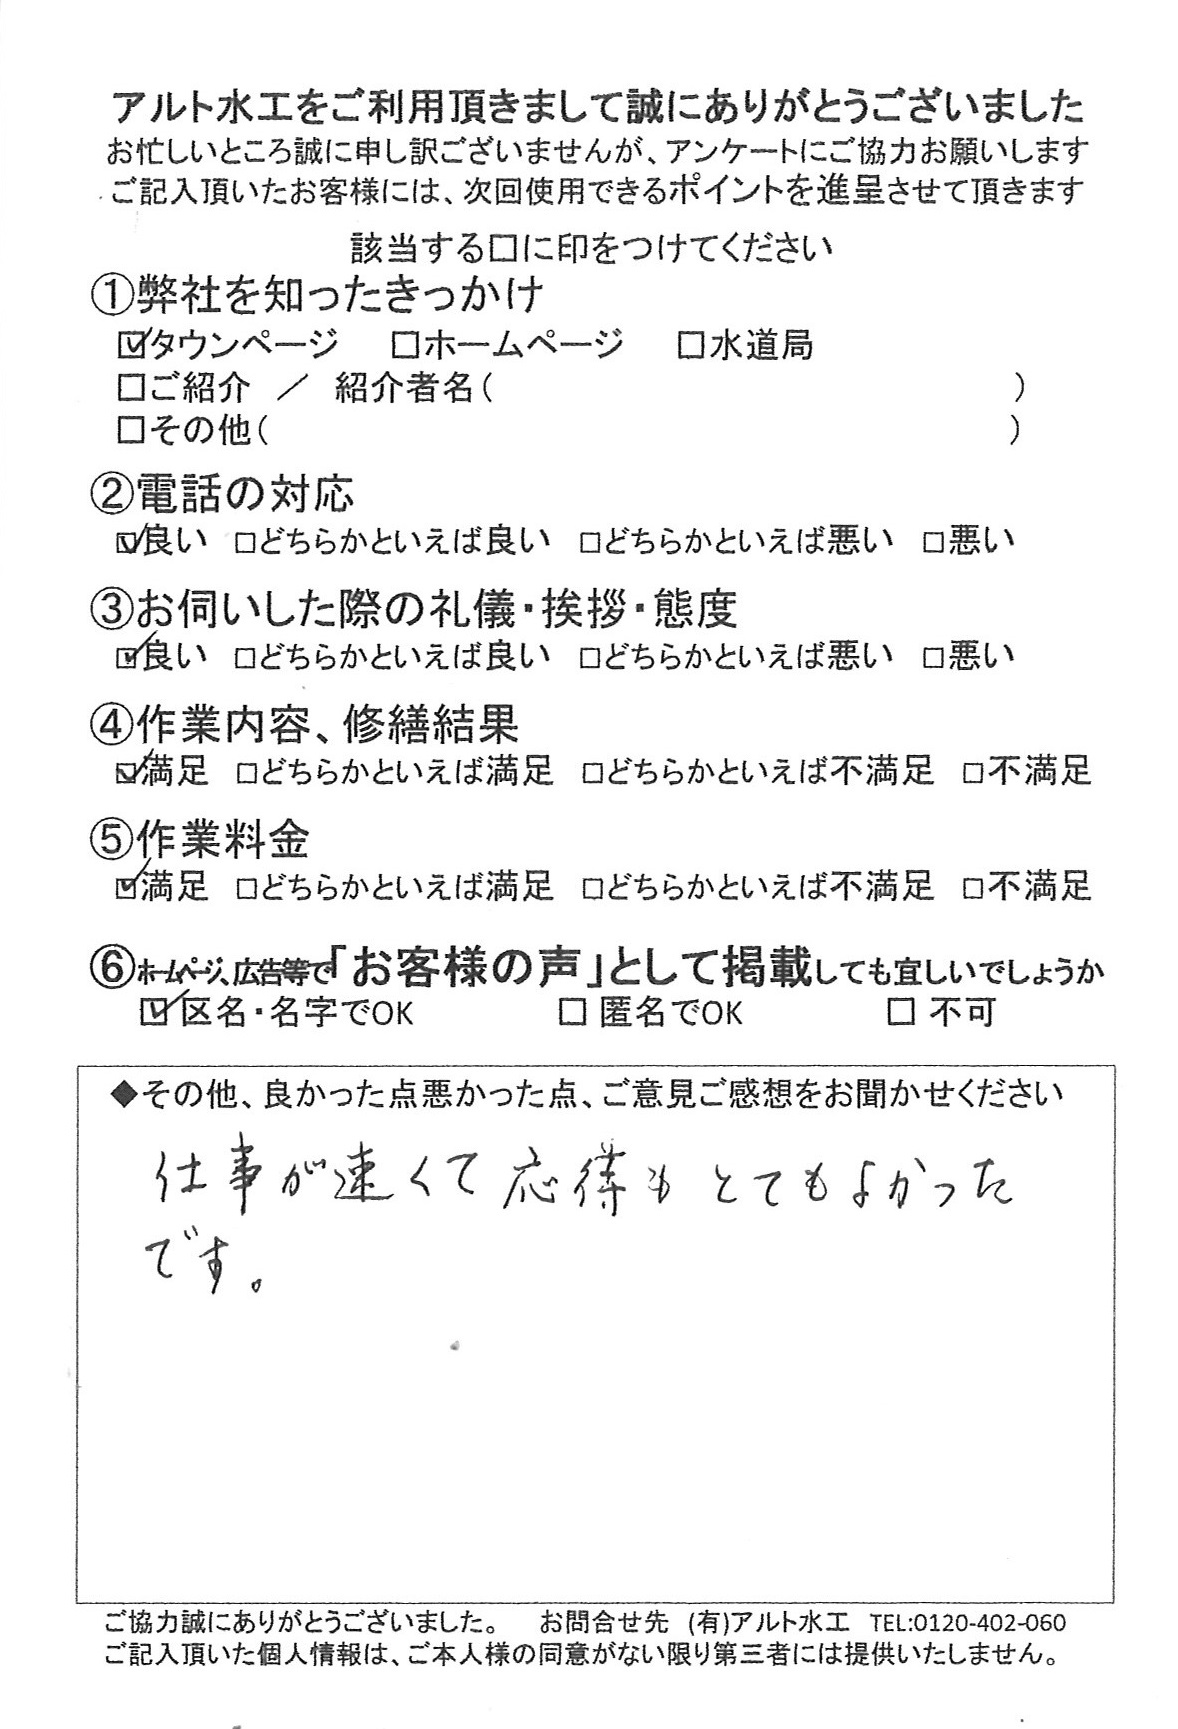 アルト水工をご利用頂きまして誠にありがとうございました
お忙しいところ誠に申し訳ございませんが、アンケートにご協力お願いします
ご記入頂いたお客様には、次回使用できるポイントを進呈させて頂きます
該当する□に印をつけてください
①弊社を知ったきっかけ
☑タウンページ □ホームページ □水道局
□ご紹介 ／ 紹介者名( )
□その他( )
②電話の対応
☑良い □どちらかといえば良い □どちらかといえば悪い □悪い
③お伺いした際の礼儀・挨拶・態度
☑良い □どちらかといえば良い □どちらかといえば悪い □悪い
④作業内容、修繕結果
☑満足 □どちらかといえば満足 □どちらかといえば不満足 □不満足
⑤作業料金
☑満足 □どちらかといえば満足 □どちらかといえば不満足 □不満足
⑥ホームページ、広告等で「お客様の声」として掲載しても宜しいでしょうか
☑区名・名字でOK □ 匿名でOK □ 不可
◆その他、良かった点悪かった点、ご意見ご感想をお聞かせください
仕事が速くて応待もとてもよかった
です。
ご協力誠にありがとうございました。 お問合せ先 (有)アルト水工 TEL:0120-402-060
ご記入頂いた個人情報は、ご本人様の同意がない限り第三者には提供いたしません。